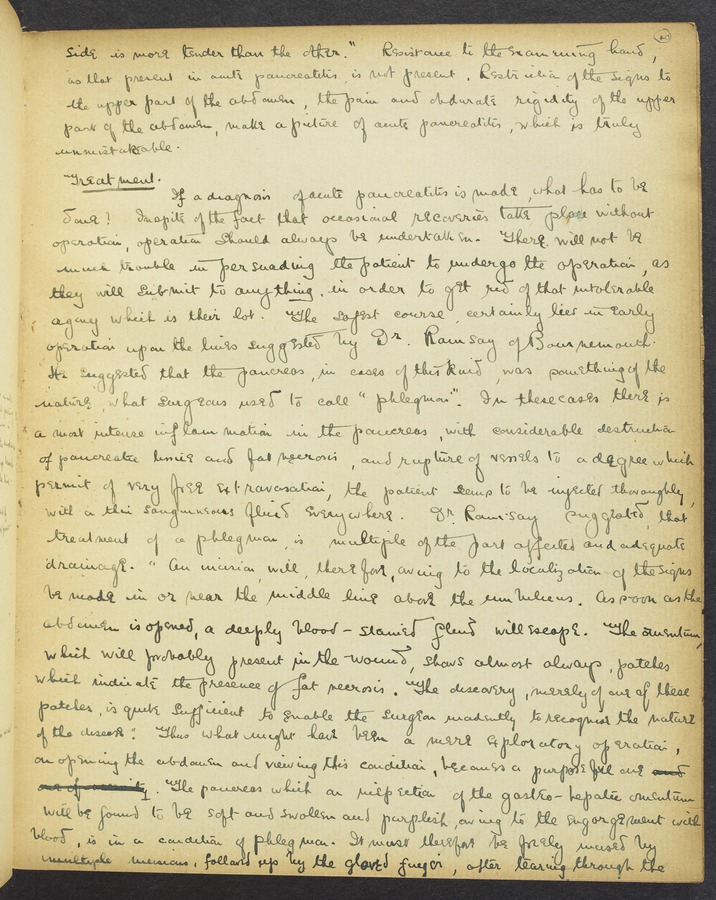 side is more tender than the other." Resistance to the examining hand,
as that present in acute pancreatitis, is not present. Restriction of the signs to
the upper part of the abdomen, the pain and obdurate rigidity of the upper
part of the abdomen, make a picture of acute pancreatitis, which is truly
unmistakeable.
Treatment.
If a diagnosis of acute pancreatitis is made, what has to be
done! Inspite of the fact that occasional recoveries take place without
operation, operation should always be undertaken. There will not be
much trouble in persuading the patient to undergo the operation, as
they will submit to anything in order to get rid of that intolerable
agony which is their lot. "The safest course certainly lies in early
operation upon the lines suggested by Dr. Ramsay of Bournemouth.
He suggested that the pancreas, in cases of this kind, was something of the
nature, what surgeons used to call "phlegmon". In these cases there is
a most intense inflammation in the pancreas, with considerable destruction
of pancreatic tissue and fat necrosis, and rupture of vessels to a degree which
permit of very free extravasation, the patient seems to be injected thoroughly
with a thin sanguineous fluid everywhere. Dr. Ramsay suggested, that
treatment of a phlegmon, is multiple of the part affected and adequate
drainage. "An incision will, therefore, owing to the localization of the signs
be made in or near the middle line above the umbilicus. As soon as the
abdomen is opened, a deeply blood-stained fluid will escape. The omentum,
which will probably present in the wound, shows almost always, patches
which indicate the presence of fat necrosis. "The discovery, merely of one of these
patches, is quite sufficient to enable the surgeon to recognise the nature
of the disease! Thus what might have been a mere exploratory operation,
on opening the abdomen and viewing this condition, becomes a purposeful one
. "The pancreas which on inspection of the gastro-hepatic omentum
will be found to be soft and swollen and purplish, owing to the engorgement with
blood, is in a condition of phlegmon. It must therefore be freely incised by
multiple incisions, followed up by the gloved finger, after tearing through the